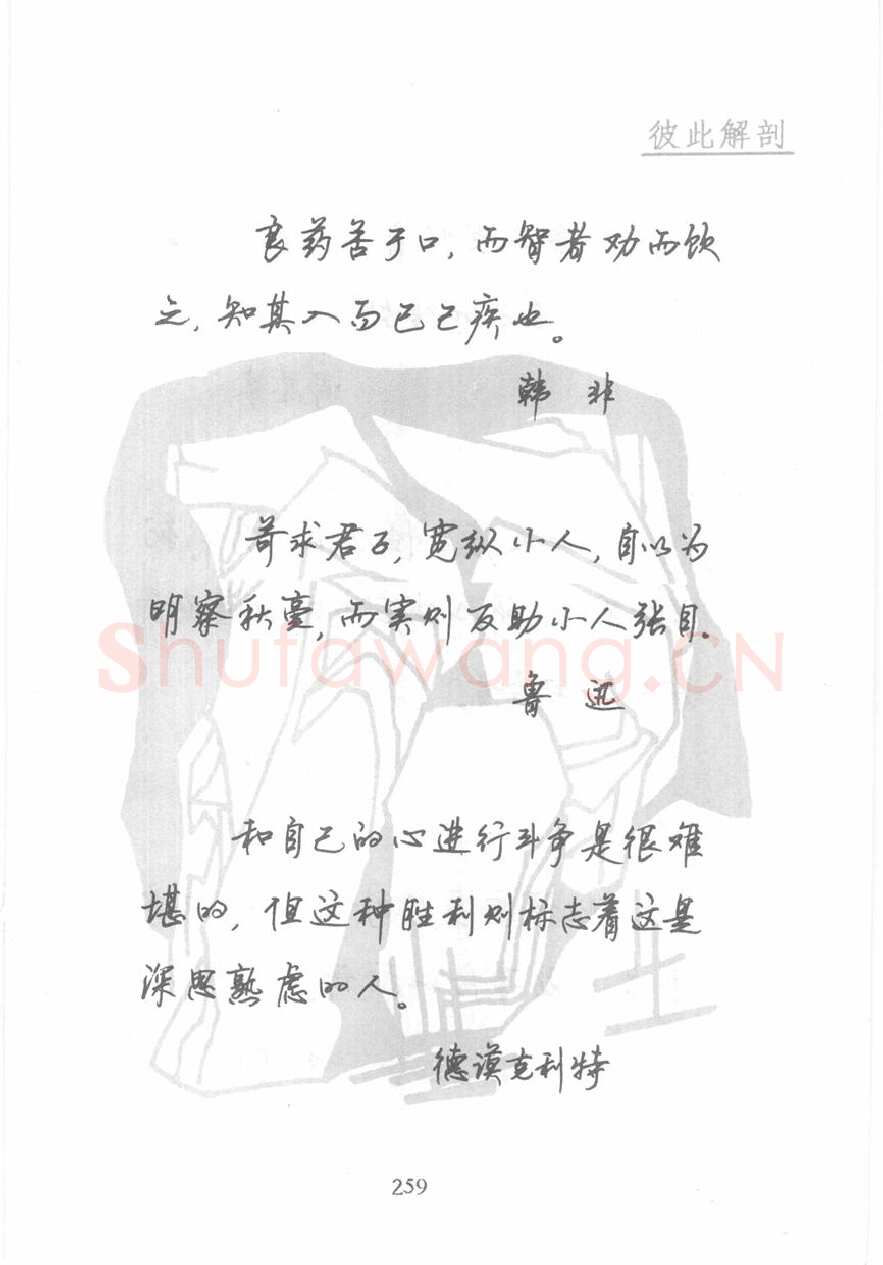 彼此解剖
良药苦于口，而智者劝而饮
之，知其入而已己疾也。
韩 非
苛求君子，宽纵小人，自以为
明察秋毫，而实则反助小人张目。
Shufawang.CN
鲁 迅
和自己的心进行斗争是很难
堪的，但这种胜利则标志着这是
深思熟虑的人。
德谟克利特
259